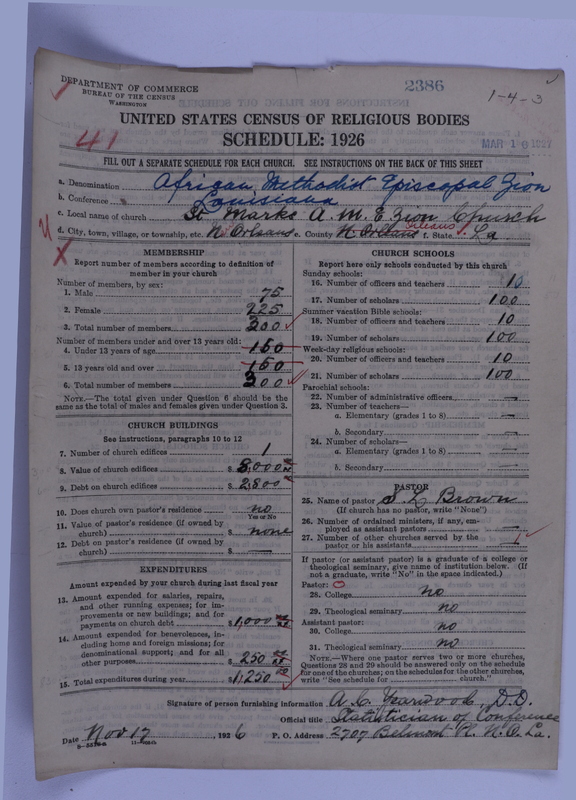 DEPARTMENT OF COMMERCE
BUREAU OF THE CENSUS
WASHINGTON
2386
1-4-3
41
UNITED STATES CENSUS OF RELIGIOUS BODIES
SCHEDULE: 1926
MAR 16 1927
FILL OUT A SEPARATE SCHEDULE FOR EACH CHURCH. SEE INSTRUCTIONS ON THE BACK OF THIS SHEET
a. Denomination African Methodist Episcopal Zion
b. Conference Louisiana
c. Local name of church St Marks A. M. E Zion Church
d. City, town, village, or township, etc. N. Orleans e. County N. Orleans Orleans f. State La
MEMBERSHIP
Report number of members according to definition of
member in your church
Number of members, by sex:
1. Male 75
2. Female 225
3. Total number of members 300
Number of members under and over 13 years old:
4. Under 13 years of age 150
5. 13 years old and over 150
6. Total number of members 300
NOTE.—The total given under Question 6 should be the
same as the total of males and females given under Question 3.
CHURCH BUILDINGS
See instructions, paragraphs 10 to 12
7. Number of church edifices 1
8. Value of church edifices $ 8,000
9. Debt on church edifices $ 2800
10. Does church own pastor's residence no
Yes or No
11. Value of pastor's residence (if owned by
church) $ none
12. Debt on pastor's residence (if owned by
church) $ —
EXPENDITURES
Amount expended by your church during last fiscal year
13. Amount expended for salaries, repairs,
and other running expenses; for im-
provements or new buildings; and for
payments on church debt $ 1,000
14. Amount expended for benevolences, in-
cluding home and foreign missions; for
denominational support; and for all
other purposes $ 250
15. Total expenditures during year $ 1,250
CHURCH SCHOOLS
Report here only schools conducted by this church
Sunday schools:
16. Number of officers and teachers 13
17. Number of scholars 100
Summer vacation Bible schools:
18. Number of officers and teachers 10
19. Number of scholars 100
Week-day religious schools:
20. Number of officers and teachers 10
21. Number of scholars 100
Parochial schools:
22. Number of administrative officers —
23. Number of teachers—
a. Elementary (grades 1 to 8) —
b. Secondary —
24. Number of scholars—
a. Elementary (grades 1 to 8) —
b. Secondary —
PASTOR
25. Name of pastor S. L. Brown
(If church has no pastor, write "None")
26. Number of ordained ministers, if any, em-
ployed as assistant pastors —
27. Number of other churches served by the
pastor or his assistants 1
If pastor (or assistant pastor) is a graduate of a college or
theological seminary, give name of institution below. (If
not a graduate, write "No" in the space indicated.)
Pastor:
28. College no
29. Theological seminary no
Assistant pastor:
30. College no
31. Theological seminary no
NOTE.—Where one pastor serves two or more churches,
Questions 28 and 29 should be answered only on the schedule
for one of the churches; on the schedules for the other churches,
write "See schedule for church."
Signature of person furnishing information A. L. Yearwood, D.D.
Official title Statistician of Conference
Date Nov 17, 1926 P. O. Address 2707 Belmont Pl. N. O. La.